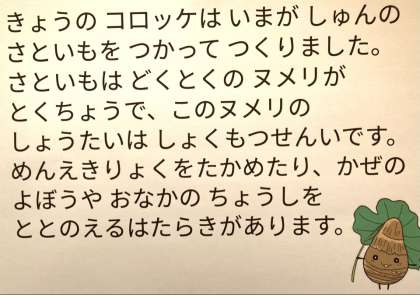 きょうの コロッケは いまが しゅんの
さといもを つかって つくりました。
さといもは どくとくの ヌメリが
とくちょうで、このヌメリの
しょうたいは しょくもつせんいです。
めんえきりょくをたかめたり、かぜの
よぼうや おなかの ちょうしを
ととのえるはたらきがあります。